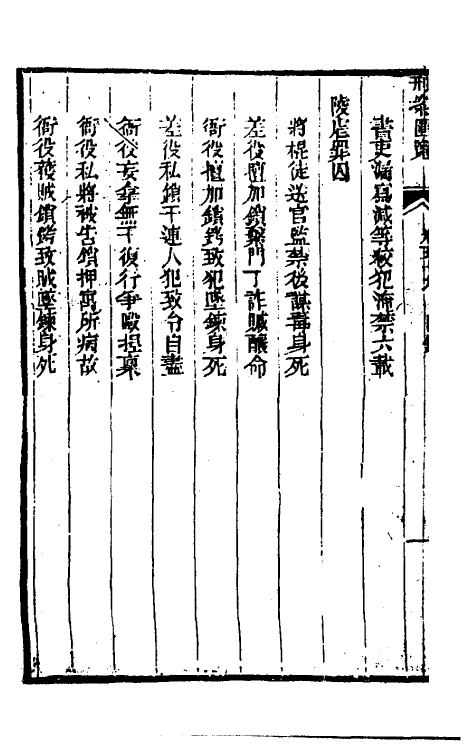 書吏漏寫減等絞犯淹禁六載
陵虐罪囚
將棍徒送官監禁後謀毒身死
差役擅加鎖繫門丁詐贓釀命
衙役擅加鎖銬致犯墜鍊身死
差役私鎖干連人犯致令自盡
衙役妄拿無干復行爭毆捏稟
衙役私將被告鎖押寓所病故
衙役獲賊鎖銬致賊墜鍊身死